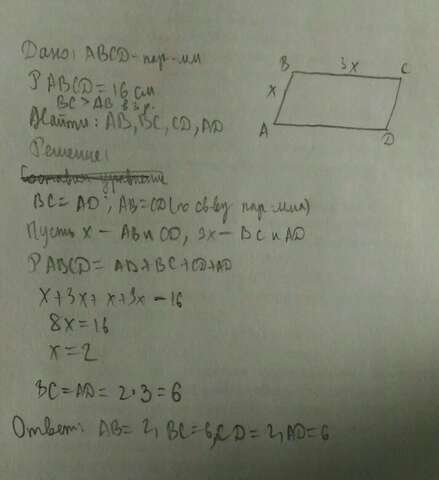 Дано: ABCD - пар-мм
P ABCD = 16 см
BC > AB в 3 р.
Найти: AB, BC, CD, AD
Решение:
Составим уравнение
BC = AD; AB = CD (по св-ву пар-мма)
Пусть x - AB и CD, 3x - BC и AD
P ABCD = AD + BC + CD + AD
x + 3x + x + 3x - 16
8x = 16
x = 2
BC = AD = 2 · 3 = 6
Ответ: AB = 2, BC = 6, CD = 2, AD = 6
B 3x C
x
A D